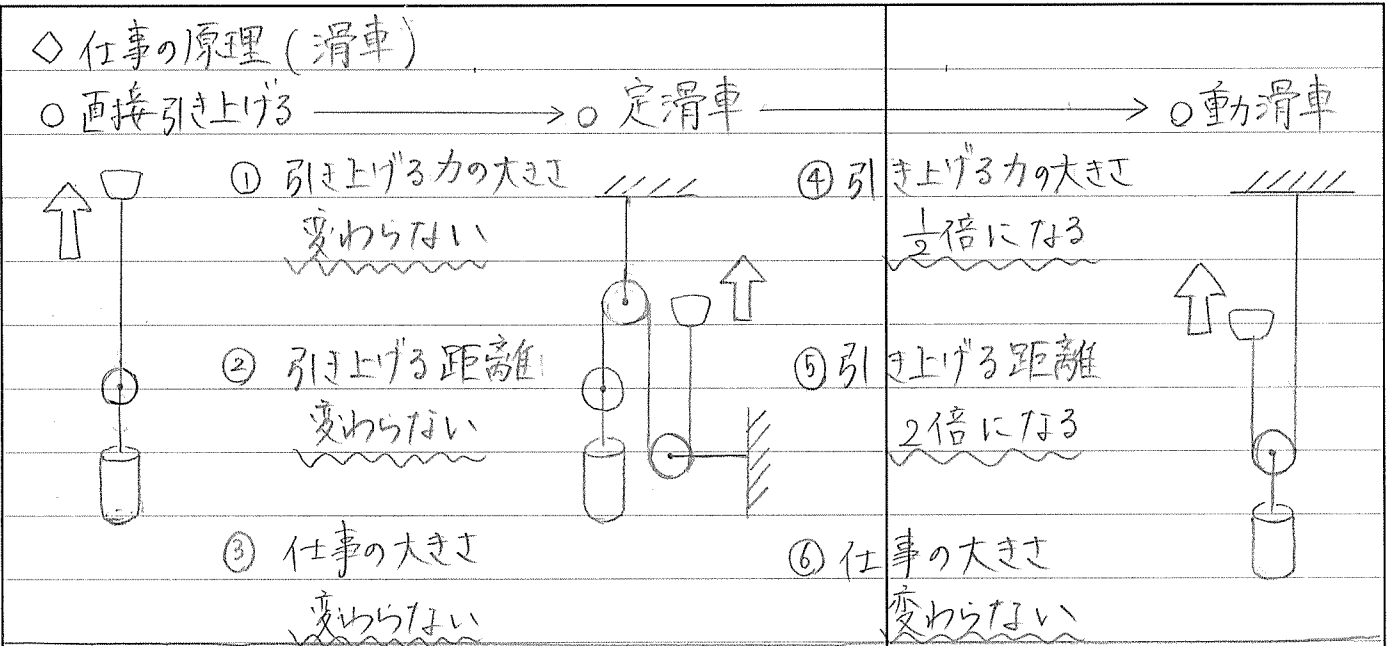 ◇ 仕事の原理(滑車)
○ 直接引き上げる → ○ 定滑車 → ○ 動滑車
① 引き上げる力の大きさ
変わらない
② 引き上げる距離
変わらない
③ 仕事の大きさ
変わらない
④ 引き上げる力の大きさ
1/2倍になる
⑤ 引き上げる距離
2倍になる
⑥ 仕事の大きさ
変わらない